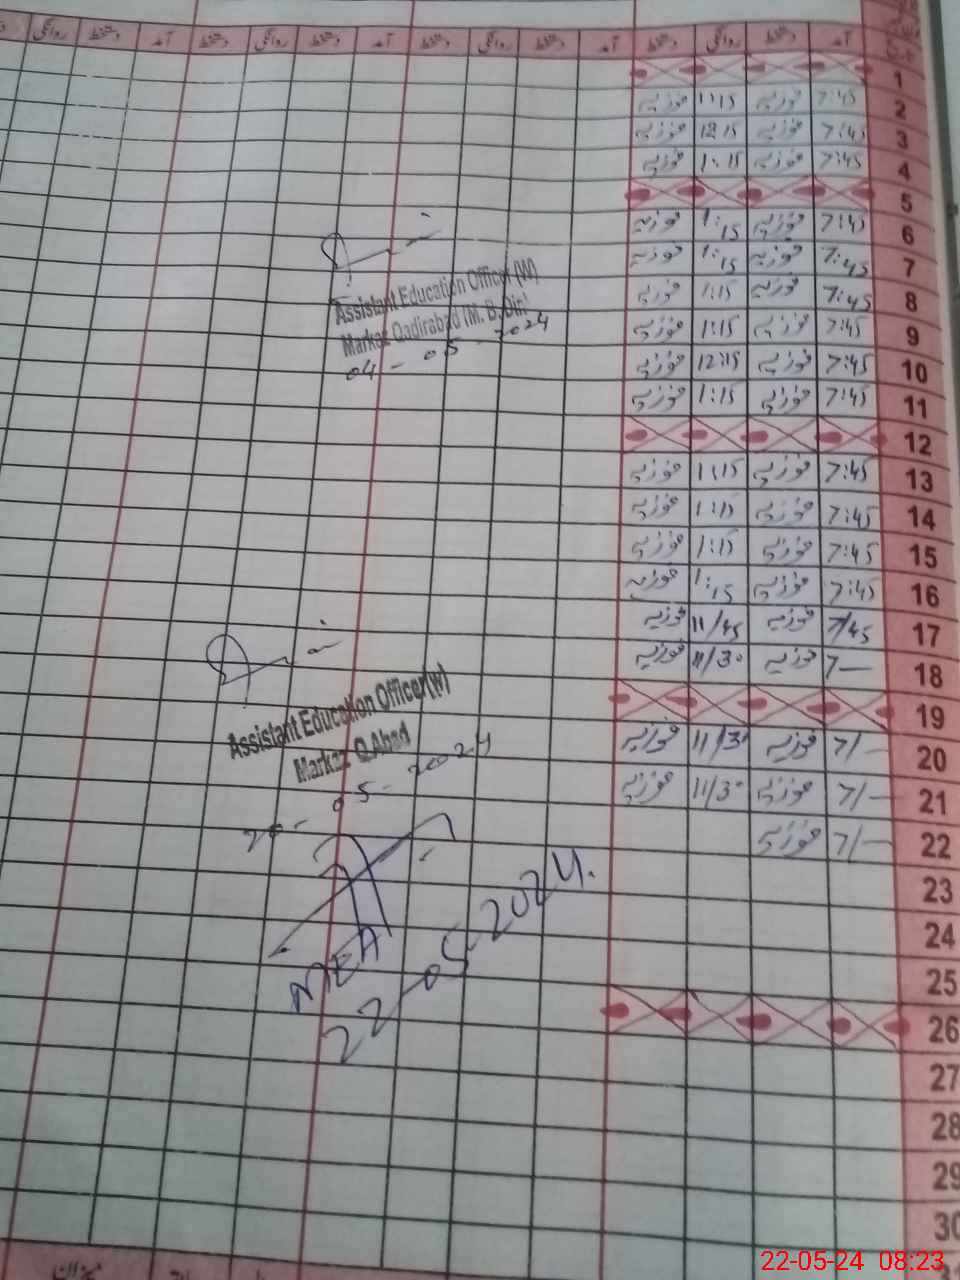 آمد دستخط روانگی دستخط آمد دستخط روانگی دستخط آمد دستخط روانگی دستخط آمد
1
2 7:45 فوزیہ 1:15 فوزیہ
3 7:45 فوزیہ 12:15 فوزیہ
4 7:45 فوزیہ 1:15 فوزیہ
5
6 7:45 فوزیہ 1:15 فوزیہ
7 7:45 فوزیہ 1:15 فوزیہ
8 7:45 فوزیہ 1:15 فوزیہ
9 7:45 فوزیہ 1:15 فوزیہ
10 7:45 فوزیہ 12:15 فوزیہ
11 7:45 فوزیہ 1:15 فوزیہ
12
13 7:45 فوزیہ 1:15 فوزیہ
14 7:45 فوزیہ 1:15 فوزیہ
15 7:45 فوزیہ 1:15 فوزیہ
16 7:45 فوزیہ 1:15 فوزیہ
17 7/45 فوزیہ 11/45 فوزیہ
18 7— فوزیہ 11/30 فوزیہ
19
20 7/— فوزیہ 11/30 فوزیہ
21 7/— فوزیہ 11/30 فوزیہ
22 7/— فوزیہ
23
24
25
26
27
28
29
30
Assistant Education Officer (W)
Markaz Qadirabad (M. B. Din)
04-05-2024
Assistant Education Officer(W)
Markaz Q.Abad
20-05-2024
MEA
22-05-2024.
میزان
22-05-24 08:23